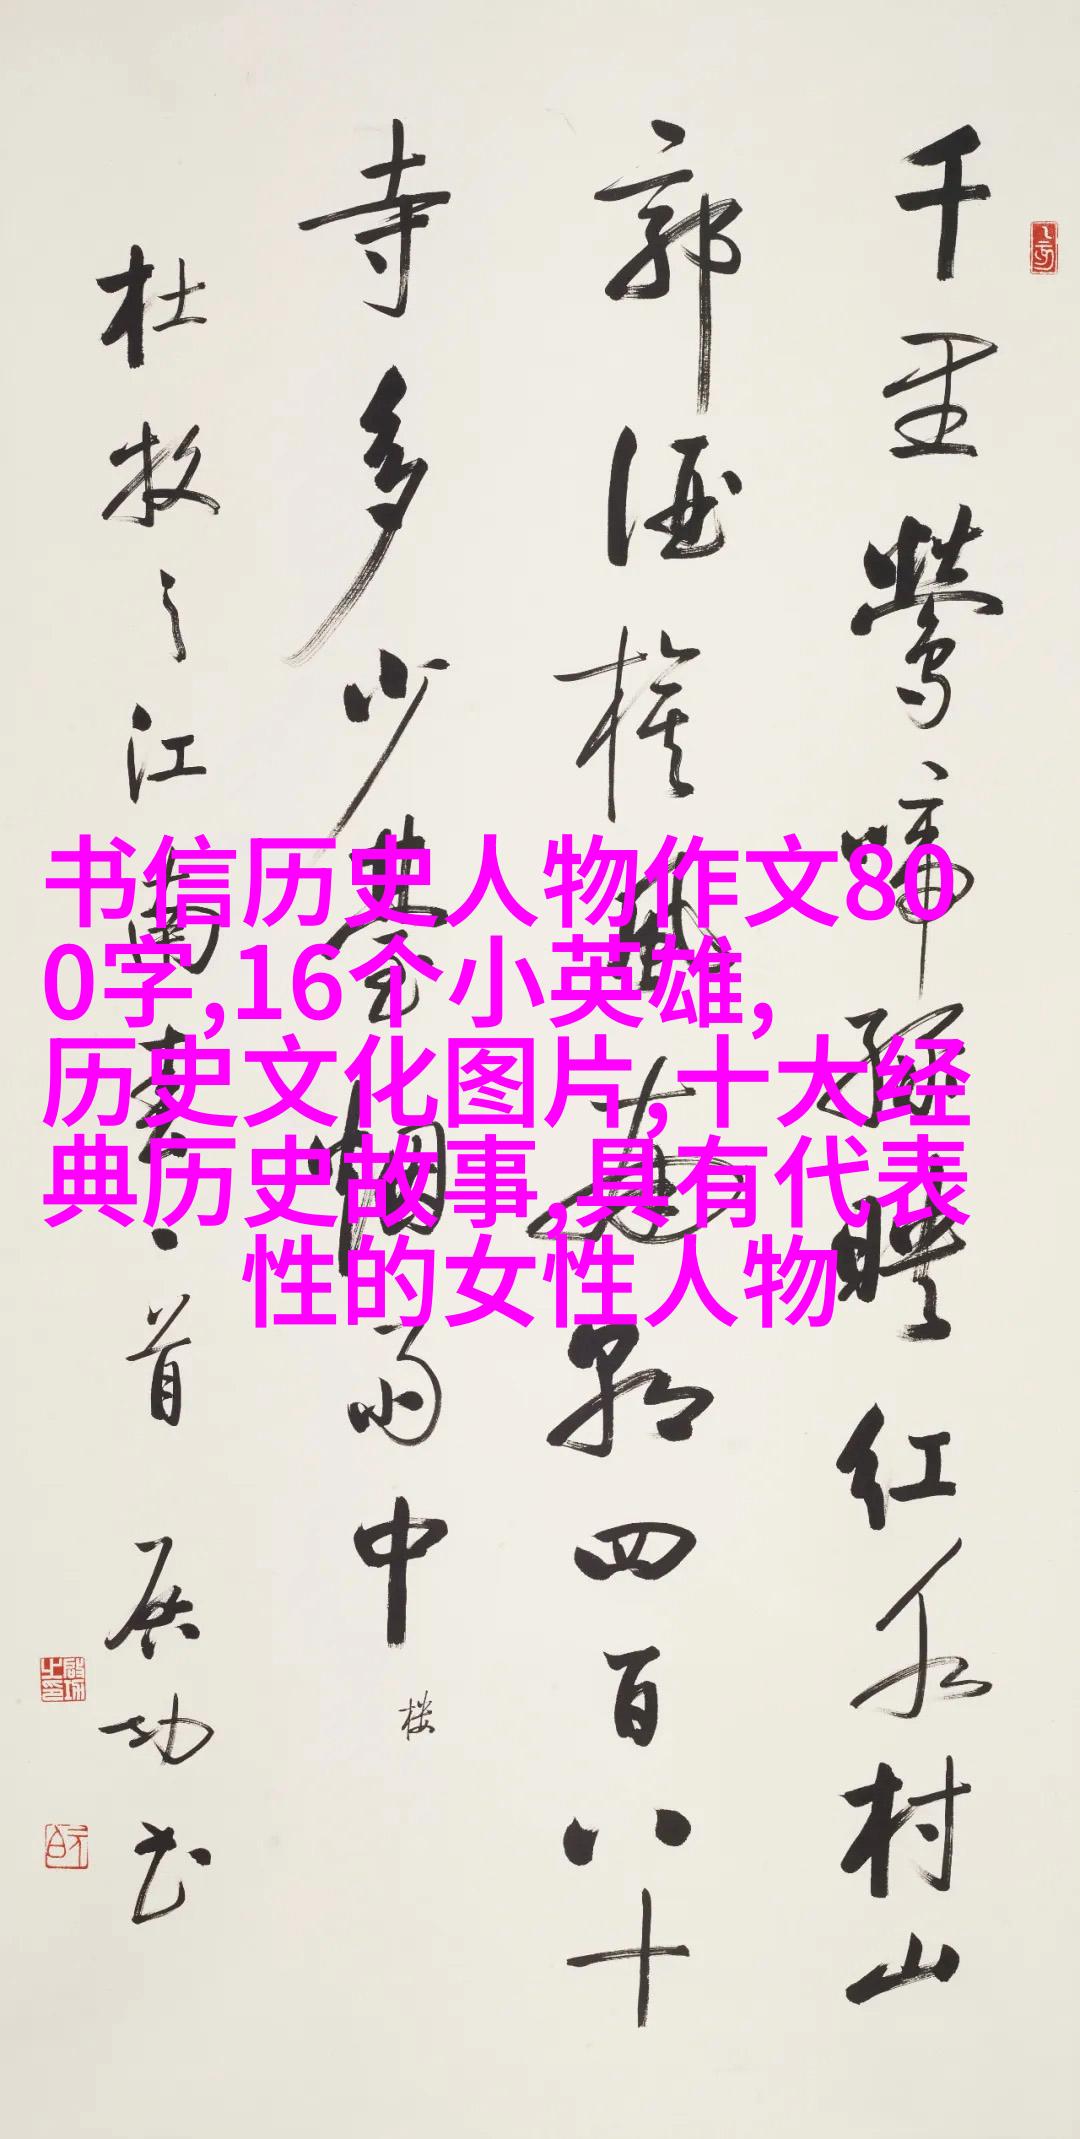 千里鶯啼綠暎紅水村山
郭酒旗風南朝四百八十
寺多少臺烟雨中
楼
杜牧之江南春一首 啟功书
书信历史人物作文80
0字,16个小英雄,
历史文化图片,十大经
典历史故事,具有代表
性的女性人物